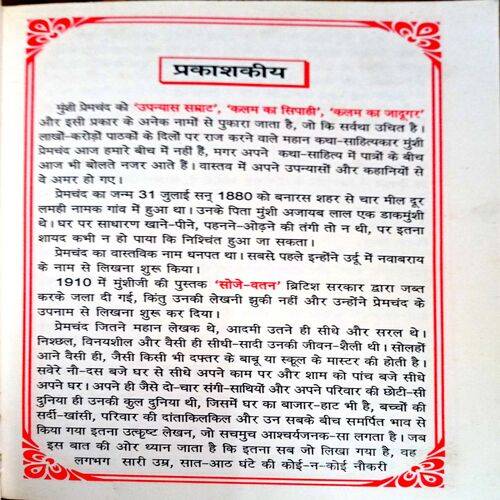 प्रकाशकीय
मुंशी प्रेमचंद को 'उपन्यास सम्राट', 'कलम का सिपाही', 'कलम का जादूगर'
और इसी प्रकार के अनेक नामों से पुकारा जाता है, जो कि सर्वथा उचित है।
लाखों-करोड़ों पाठकों के दिलों पर राज करने वाले महान कथा-साहित्यकार मुंशी
प्रेमचंद आज हमारे बीच में नहीं हैं, मगर अपने कथा-साहित्य में पात्रों के बीच
आज भी बोलते नजर आते हैं। वास्तव में अपने उपन्यासों और कहानियों से
वे अमर हो गए।
प्रेमचंद का जन्म 31 जुलाई सन् 1880 को बनारस शहर से चार मील दूर
लमही नामक गांव में हुआ था। उनके पिता मुंशी अजायब लाल एक डाकमुंशी
थे। घर पर साधारण खाने-पीने, पहनने-ओढ़ने की तंगी तो न थी, पर इतना
शायद कभी न हो पाया कि निश्चिंत हुआ जा सकता।
प्रेमचंद का वास्तविक नाम धनपत था। सबसे पहले इन्होंने उर्दू में नवाबराय
के नाम से लिखना शुरू किया।
1910 में मुंशीजी की पुस्तक 'सोजे-वतन' ब्रिटिश सरकार द्वारा जब्त
करके जला दी गई, किंतु उनकी लेखनी झुकी नहीं और उन्होंने प्रेमचंद के
उपनाम से लिखना शुरू कर दिया।
प्रेमचंद जितने महान लेखक थे, आदमी उतने ही सीधे और सरल थे।
निश्छल, विनयशील और वैसी ही सीधी-सादी उनकी जीवन-शैली थी। सोलहों
आने वैसी ही, जैसी किसी भी दफ्तर के बाबू या स्कूल के मास्टर की होती है।
सवेरे नौ-दस बजे घर से सीधे अपने काम पर और शाम को पांच बजे सीधे
अपने घर। अपने ही जैसे दो-चार संगी-साथियों और अपने परिवार की छोटी-सी
दुनिया ही उनकी कुल दुनिया थी, जिसमें घर का बाजार-हाट भी है, बच्चों की
सर्दी-खांसी, परिवार की दांताकिलकिल और उन सबके बीच समर्पित भाव से
किया गया इतना उत्कृष्ट लेखन, जो सचमुच आश्चर्यजनक-सा लगता है। जब
इस बात की ओर ध्यान जाता है कि इतना सब जो लिखा गया है, वह
लगभग सारी उम्र, सात-आठ घंटे की कोई-न-कोई नौकरी